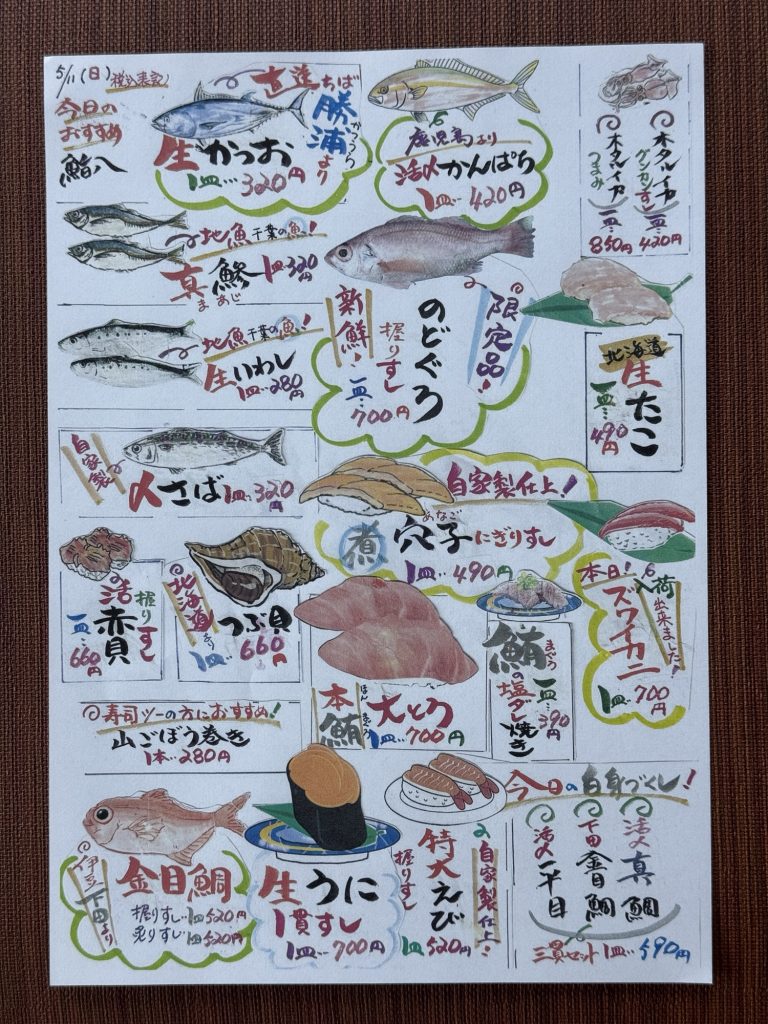 5/11(日) 税込表記
今日の
おすすめ
鮨八
直送ちば
勝浦より
かつうら
生かつお
1皿…320円
鹿児島より
活〆かんぱち
1皿…420円
ホタルイカ
グンカンすし
一皿…420円
ホタルイカ
つまみ
一皿…850円
地魚 千葉の魚!
真鯵 1皿320円
まあじ
限定品!
のどぐろ
握りすし
新鮮!
一皿…700円
北海道
生たこ
一皿…490円
地魚 千葉の魚!
生いわし
1皿…280円
自家製
〆さば 1皿…320円
自家製仕上!
あなご
煮穴子にぎりすし
1皿…490円
本日!
入荷出来ました!
ズワイカニ
1皿…700円
握りすし
活赤貝
一皿…660円
北海道より
つぶ貝
1皿…660円
本鮪
ほんまぐろ
大とろ
1皿…700円
まぐろ
鮪の塩ダレ焼き
一皿…390円
寿司ツーの方におすすめ!
山ごぼう巻き
1本…280円
伊豆下田より
金目鯛
握りすし…1皿520円
炙りすし…1皿520円
生うに
1貫すし
1皿…700円
自家製仕上!
特大えび
握りすし
1皿520円
今日の白身づくし!
活〆真鯛
下田金目鯛
活〆平目
三貫セット1皿…590円